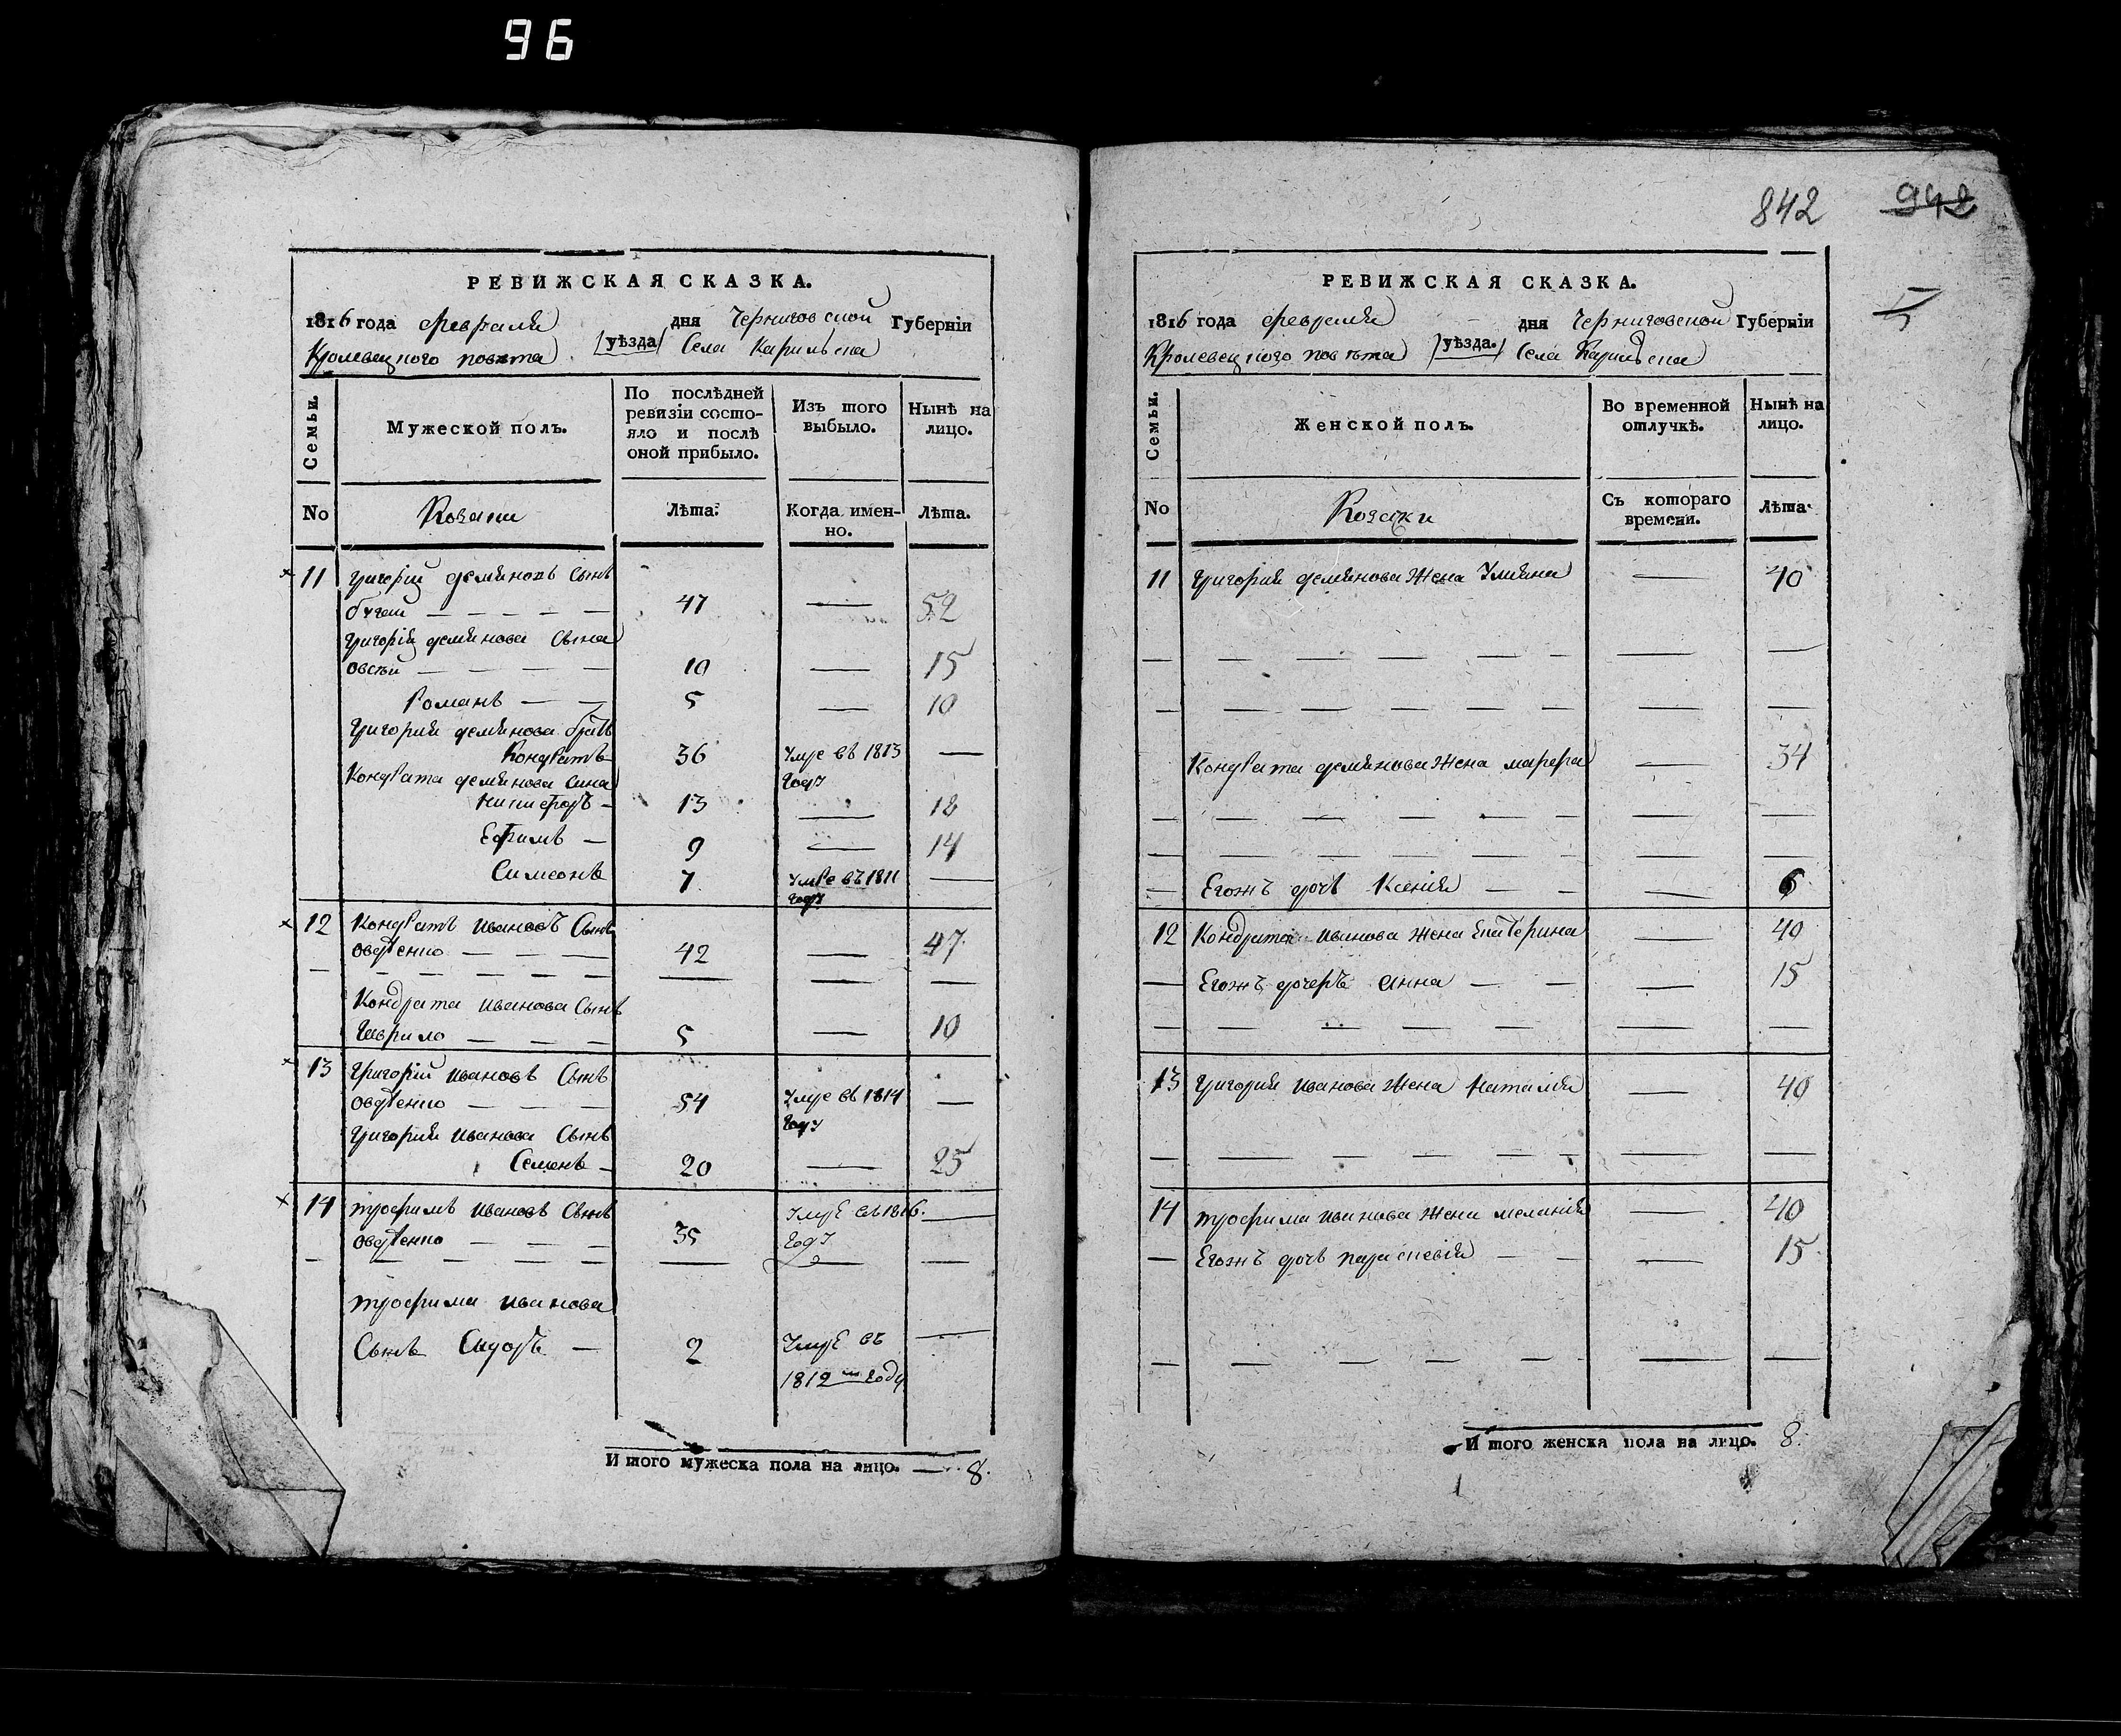 96
РЕВИЖСКАЯ СКАЗКА.
1816 года февраля дня Черниговской Губерніи
Кролевецкого повѣта уѣзда Села Карилска
Семьи.
Мужеской полъ.
По послѣдней ревизіи состояло и послѣ оной прибыло.
Изъ того выбыло.
Нынѣ на лицо.
No
Козаки
Лѣта.
Когда именно.
Лѣта.
11 Григорій деминовъ Сынъ
47 — 52
Григорія деминова Сына
овсѣй — 10 — 15
Романъ — 5 — 10
Григория деминова братъ
Кондратъ 36 Умре въ 1813 году —
Кондрата деминова сина
никифоръ — 13 — 18
Ефимъ — 9 — 14
Симеонъ 7 Умре въ 1811 году —
12 Кондратъ ивановъ Сынъ
овдѣенко — 42 — 47
Кондрата иванова Сынъ
Гаврило — 5 — 10
13 Григорій ивановъ Сынъ
овдѣенко — 54 Умре въ 1814 году —
Григория иванова Сынъ
Семенъ — 20 — 25
14 трофимъ ивановъ Сынъ
овдѣенко — 35 Умре въ 1816. году —
трофима иванова
Сынъ Сидоръ — 2 Умре въ 1812м году —
Итого мужеска пола на лицо. — 8.
842 942
РЕВИЖСКАЯ СКАЗКА.
1816 года февраля дня Черниговской Губерніи
Кролевецкого повѣта уѣзда. Села Карилска
Семьи.
Женской полъ.
Во временной отлучкѣ.
Нынѣ на лицо.
No
Козачки
Съ котораго времени.
Лѣта.
11 Григория деминова Жена Улияна — 40
Кондрата деминова Жена марфа — 34
Егожъ дочь Ксения — 6
12 Кондрата иванова жена Екатерина — 40
Егожъ дочеръ анна — 15
13 Григория иванова Жена наталия — 40
14 трофима иванова Жена мелания — 40
Егожъ дочь параскевия — 15
Итого женска пола на лицо. 8.